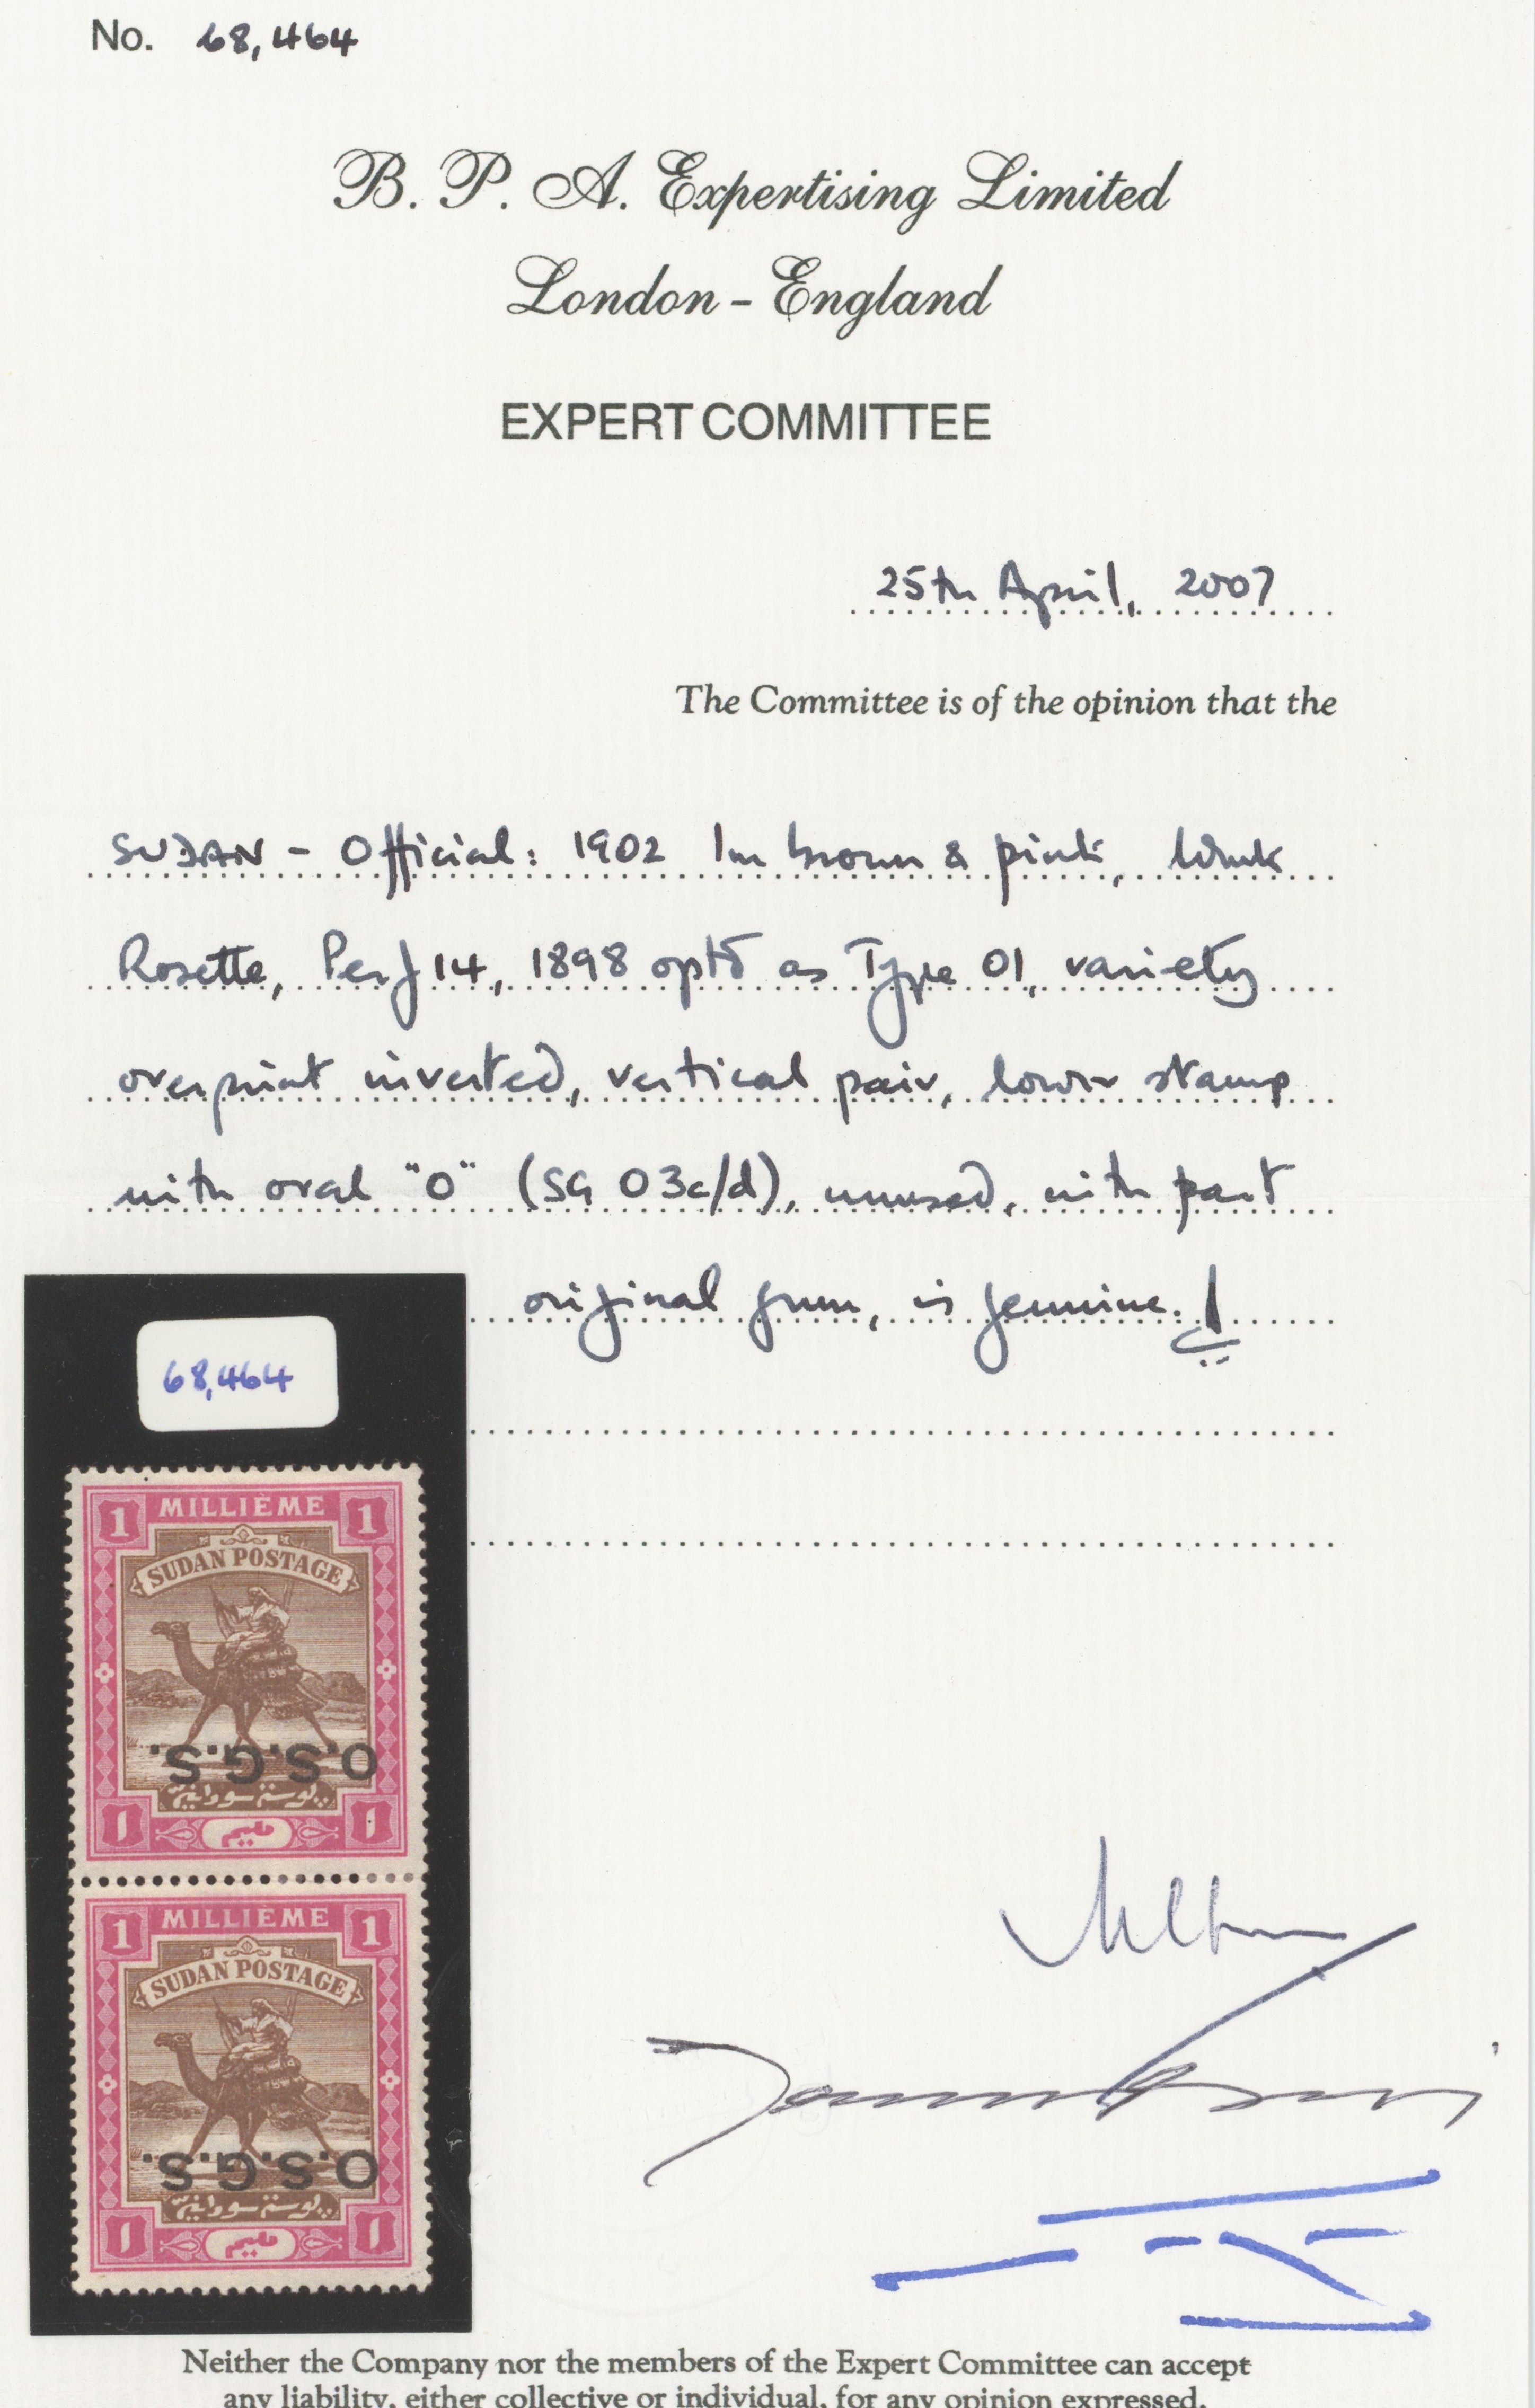 No. 68,464
B. P. A. Expertising Limited
London - England
EXPERT COMMITTEE
25th April, 2007
The Committee is of the opinion that the
SUDAN - Official: 1902 1m brown & pink, Wmk
Rosette, Perf 14, 1898 optd as Type O1, variety
overprint inverted, vertical pair, lower stamp
with oral "O" (SG O3c/d), unused, with part
original gum, is genuine.
68,464
1 MILLIÈME 1
SUDAN POSTAGE
O.S.G.S.
بوستة سودانية
١ مليم ١
1 MILLIÈME 1
SUDAN POSTAGE
O.S.G.S.
بوستة سودانية
١ مليم ١
Neither the Company nor the members of the Expert Committee can accept
any liability, either collective or individual, for any opinion expressed.